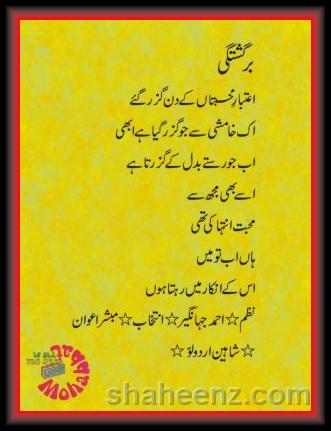 برگشتگی
اعتبارِ محبتاں کے دن گزر گئے
اک خامشی سے جو گزر گیا ہے ابھی
اب جو رستے بدل کے گزرتا ہے
اسے بھی مجھ سے
محبت انتہا کی تھی
ہاں اب تو میں
اس کے انکار میں رہتا ہوں
نظم☆احمد جہانگیر☆انتخاب☆مبشر اعوان
☆شاہین اردو لَو☆
Mohabbat
shaheenz.com